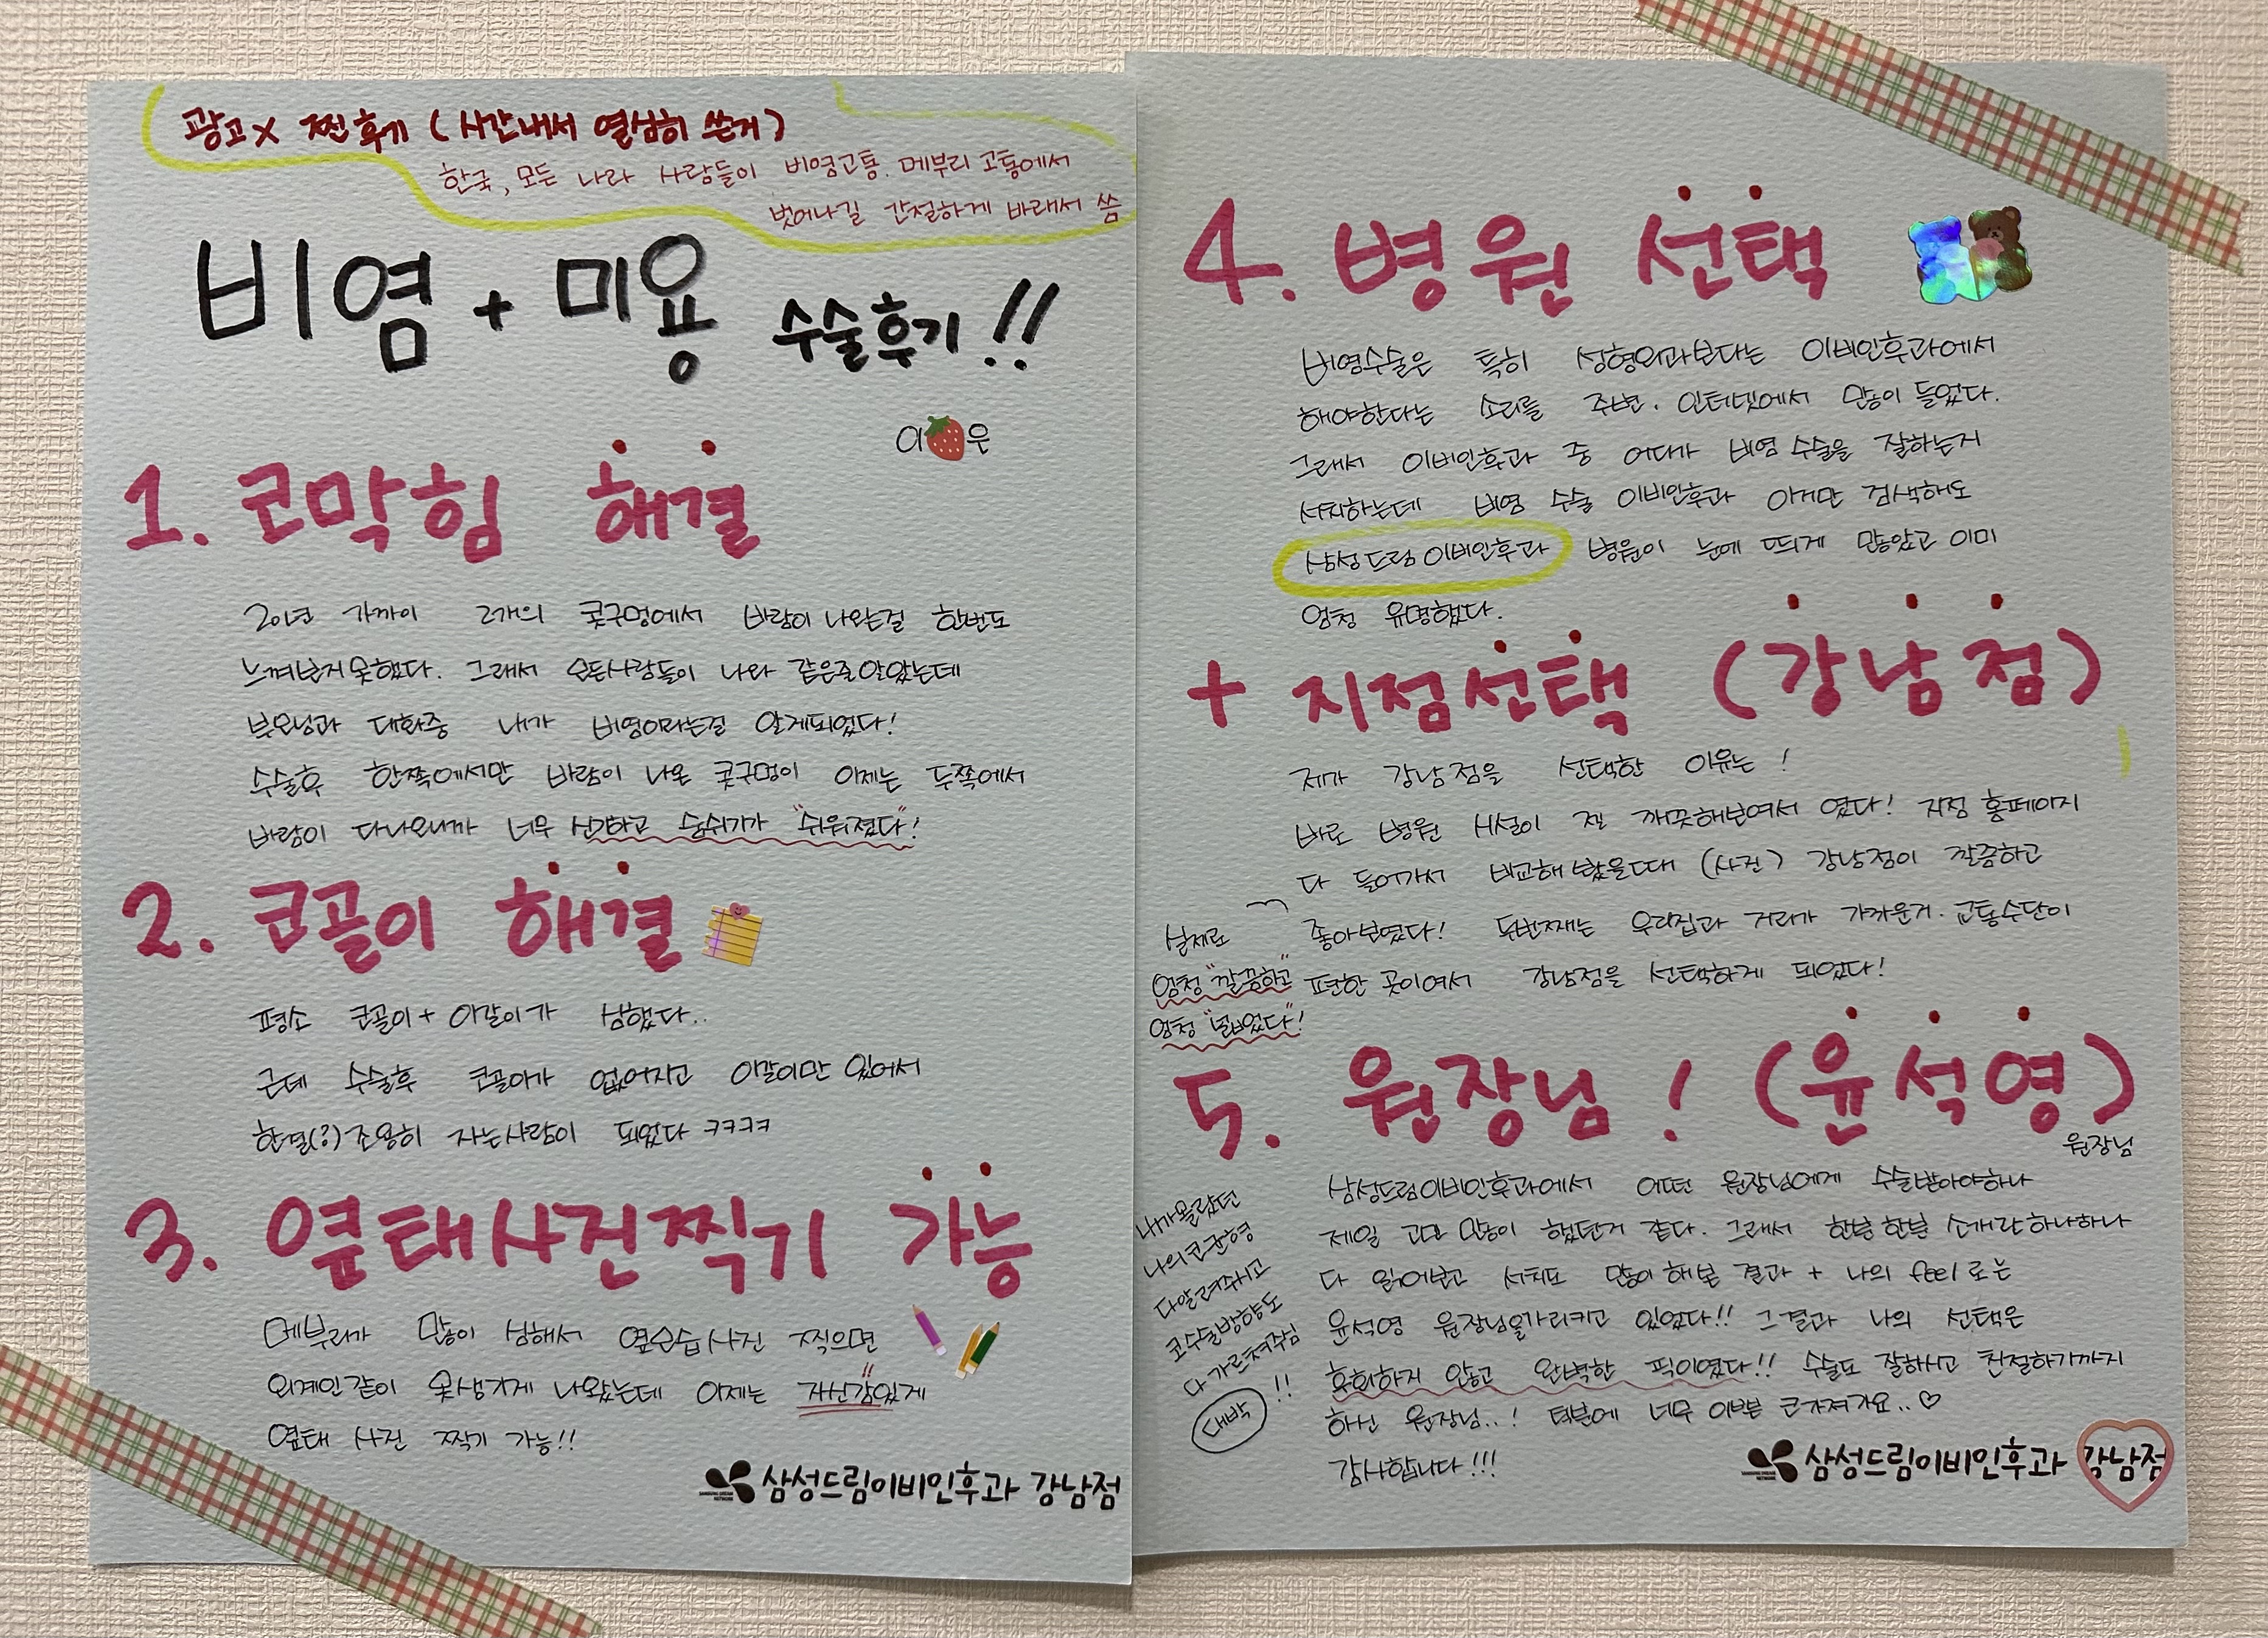 광고X 찐후기 (시간내서 열심히 쓴거)
한국, 모든 나라 사람들이 비염고통. 메부리 고통에서
벗어나길 간절하게 바래서 씀
비염 + 미용 수술후기!!
이🍓은
1. 코막힘 해결
20년 가까이 2개의 콧구멍에서 바람이 나오는걸 한번도
느껴보지못했다. 그래서 모든사람들이 나와 같은줄알았는데
부모님과 대화중 내가 비염이라는걸 알게되었다!
수술후 한쪽에서만 바람이 나온 콧구멍이 이제는 두쪽에서
바람이 다나오니까 너무 신기하고 숨쉬기가 "쉬워졌다"!
2. 코골이 해결
평소 코골이+ 이갈이가 심했다..
근데 수술후 코골이가 없어지고 이갈이만 있어서
한결(?)조용히 자는사람이 되었다 ㅋㅋㅋㅋ
3. 옆태사진찍기 가능
메부리가 많이 심해서 옆모습사진 찍으면
외계인같이 못생기게 나왔는데 이제는 자신"감"있게
옆태 사진 찍기 가능!!
SAMSUNG DREAM NETWORK 삼성드림이비인후과 강남점
4. 병원 선택
비염수술은 특히 성형외과보다는 이비인후과에서
해야한다는 소리를 주변. 인터넷에서 많이 들었다.
그래서 이비인후과 중 어디가 비염 수술을 잘하는지
서치하는데 비염 수술 이비인후과 이거만 검색해도
삼성드림이비인후과 병원이 눈에 띄게 많았고 이미
엄청 유명했다.
+ 지점선택 (강남점)
제가 강남점을 선택한 이유는!
바로 병원 시설이 젤 깨끗해보여서 였다! 지점 홈페이지
다 들어가서 비교해 봤을때 (사진) 강남점이 깔끔하고
좋아보였다! 두번째는 우리집과 거리가 가까운거. 교통수단이
편한 곳이여서 강남점을 선택하게 되었다!
실제로
엄청 "깔끔하고"
엄청 "넓었다"!
5. 원장님! (윤석영)
원장님
삼성드림이비인후과에서 어떤 원장님에게 수술받아야하나
제일 고민 많이 했던거 같다. 그래서 한분한분 소개란하나하나
다 읽어보고 서치도 많이해본 결과 + 나의 feel로는
윤석영 원장님을가리키고 있었다!! 그결과 나의 선택은
후회하지 않고 완벽한 픽이였다!! 수술도 잘하시고 친절하기까지
하신 원장님..! 덕분에 너무 이쁜 코가져가요..♡
감사합니다!!!
내가몰랐던
나의코균형
다알려주시고
코수술방향도
다가르쳐주심
대박!!
SAMSUNG DREAM NETWORK 삼성드림이비인후과 강남점